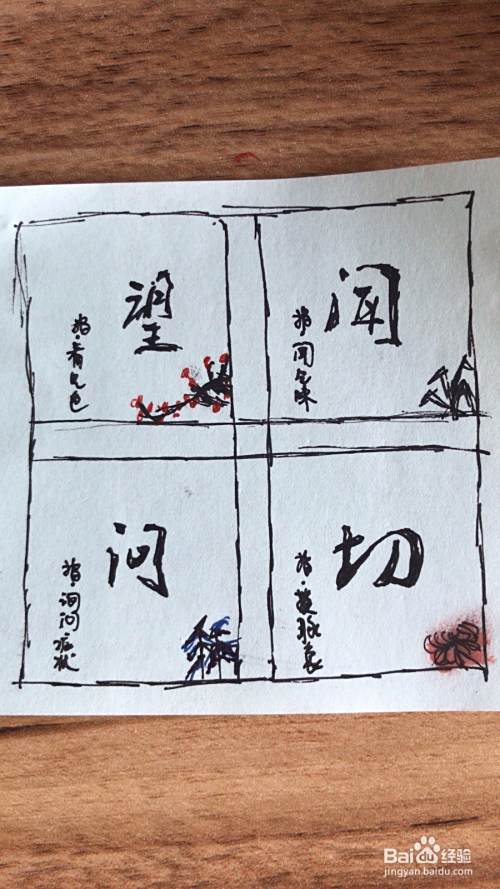 望
指·看气色
闻
指·闻气味
问
指·询问症状
切
指·摸脉象
Baidu 经验
jingyan.baidu.com